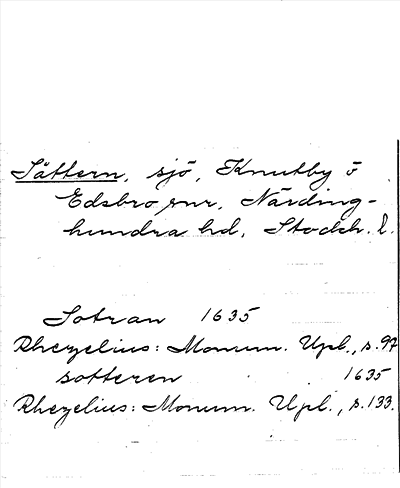 Såttern, sjö, Knutby o
Edsbro snr, Närding-
hundra hd, Stockh. l.
Sotran 1635
Rhezelius: Monum. Upl., s. 97
sotteren 1635
Rhezelius: Monum. Upl., s. 133.